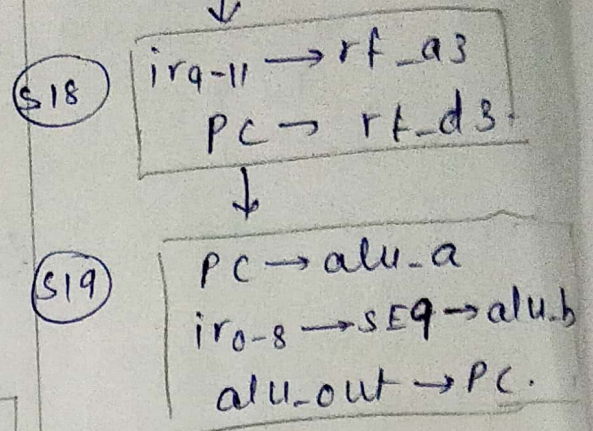 S18
ir9-11 → rf_a3
PC → rf_d3.
S19
PC → alu_a
ir0-8 → SE9 → alu_b
alu_out → PC.